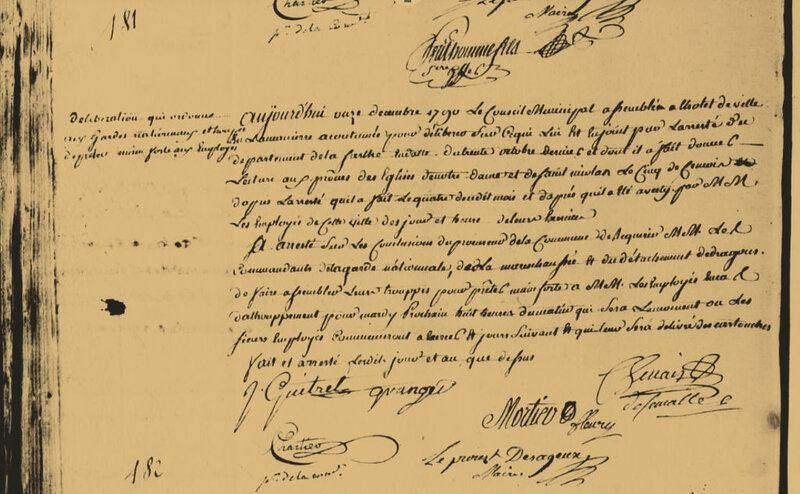 181
Chartier
p.r de la com.
Le pr
Maire
Prudhomme fils
Sre Gff
deliberation qui ordonne
aux gardes nationnaux et trouppes
de preter main forte aux Employés
aujourd'hui onze decembre 1790 Le Conseil Municipal assemblée a lhotel de ville
En La maniere acoutumée pour déliberer Sur Ce qui Lui Est Enjoint par Larreté du
departement de la Sarthe En datte du trente octobre dernier et dont il a fait donner
Lecture aux prônes des Eglises de notre dame et de Saint nicolas Le Cinq de Ce mois
dapres Larreté quil a fait Le quatre dudit mois et dapres quil a Eté averty par MM.
Les Employés de Cette ville des jour et heure de leur
Et arreté Sur Les Conclusions du procureur de la Commune de Requerir MM Les
Commandants de la garde nationale, de la marechaussée et du détachement de dragons
de faire assembler Leurs trouppes pour prêter main forte a MM. Les Employés En cas
dattrouppement pour mardy prochain huit heures du matin qui Sera Lemoment ou Les
Sieurs Employés Commenceront a & jours Suivant & qui leur Sera délivré des cartouches
Fait et arreté Lesdit jour et an que desus
J. Guitrel
Chenais
de Semallé
Mortier
fleury
Chartier
p.r de la com.
Le prout Desageux
Maire
182